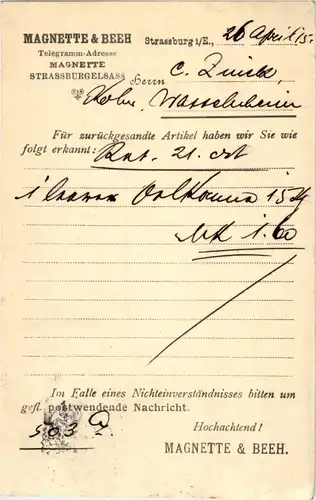 MAGNETTE & BEEH
Telegramm-Adresse
MAGNETTE
STRASSBURGELSASS
Strassburg i/E., 26 April 15.
Herrn C. Zinck,
Wasselnheim
Für zurückgesandte Artikel haben wir Sie wie
folgt erkannt: 21. ct
1 leeren 15
Mk 1.60
Im Falle eines Nichteinverständnisses bitten um
gefl. postwendende Nachricht.
Hochachtend!
503
MAGNETTE & BEEH.